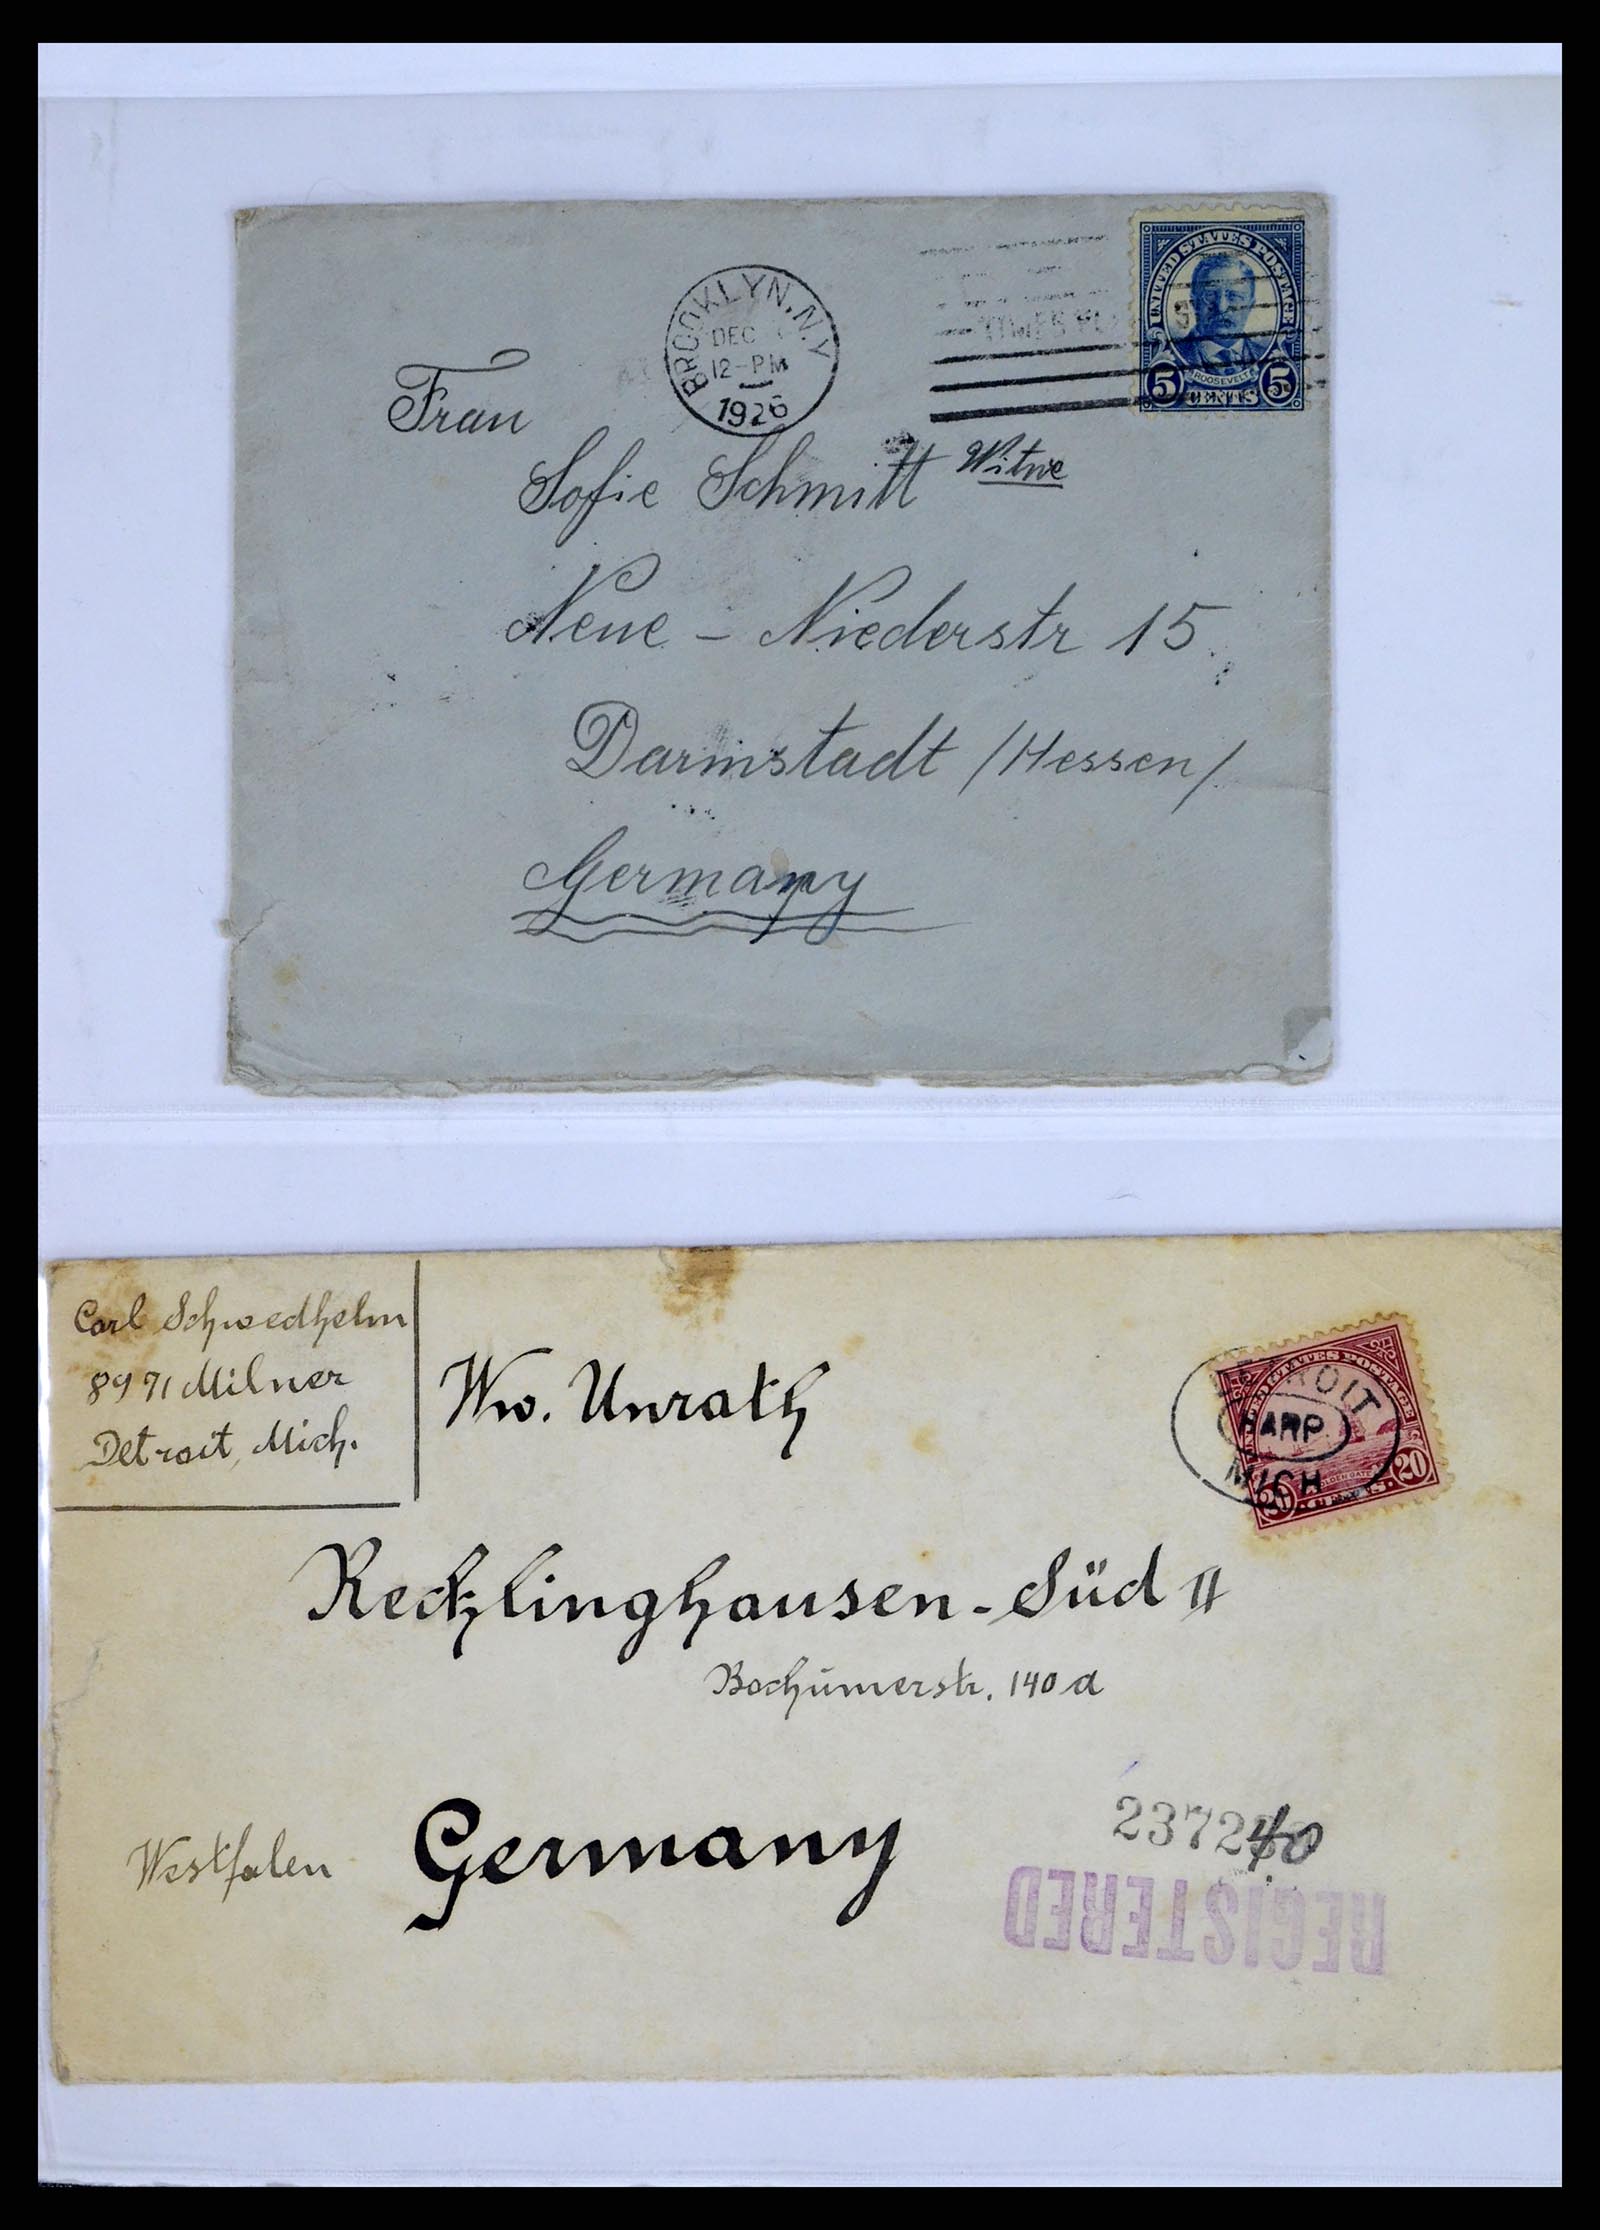 BROOKLYN, N.Y.
DEC
12-PM
1926
UNITED STATES POSTAGE
ROOSEVELT
5 CENTS 5
Frau
Sofie Schmitt Witwe
Neue - Niederstr 15
Darmstadt /Hessen/
Germany
Carl Schwedhelm
8971 Milner
Detroit, Mich.
Ww. Unrath
UNITED STATES POSTAGE
GOLDEN GATE
20 CENTS 20
DETROIT
ARP.
MICH
Recklinghausen-Süd II
Bochumerstr. 140a
Westfalen
Germany
REGISTERED